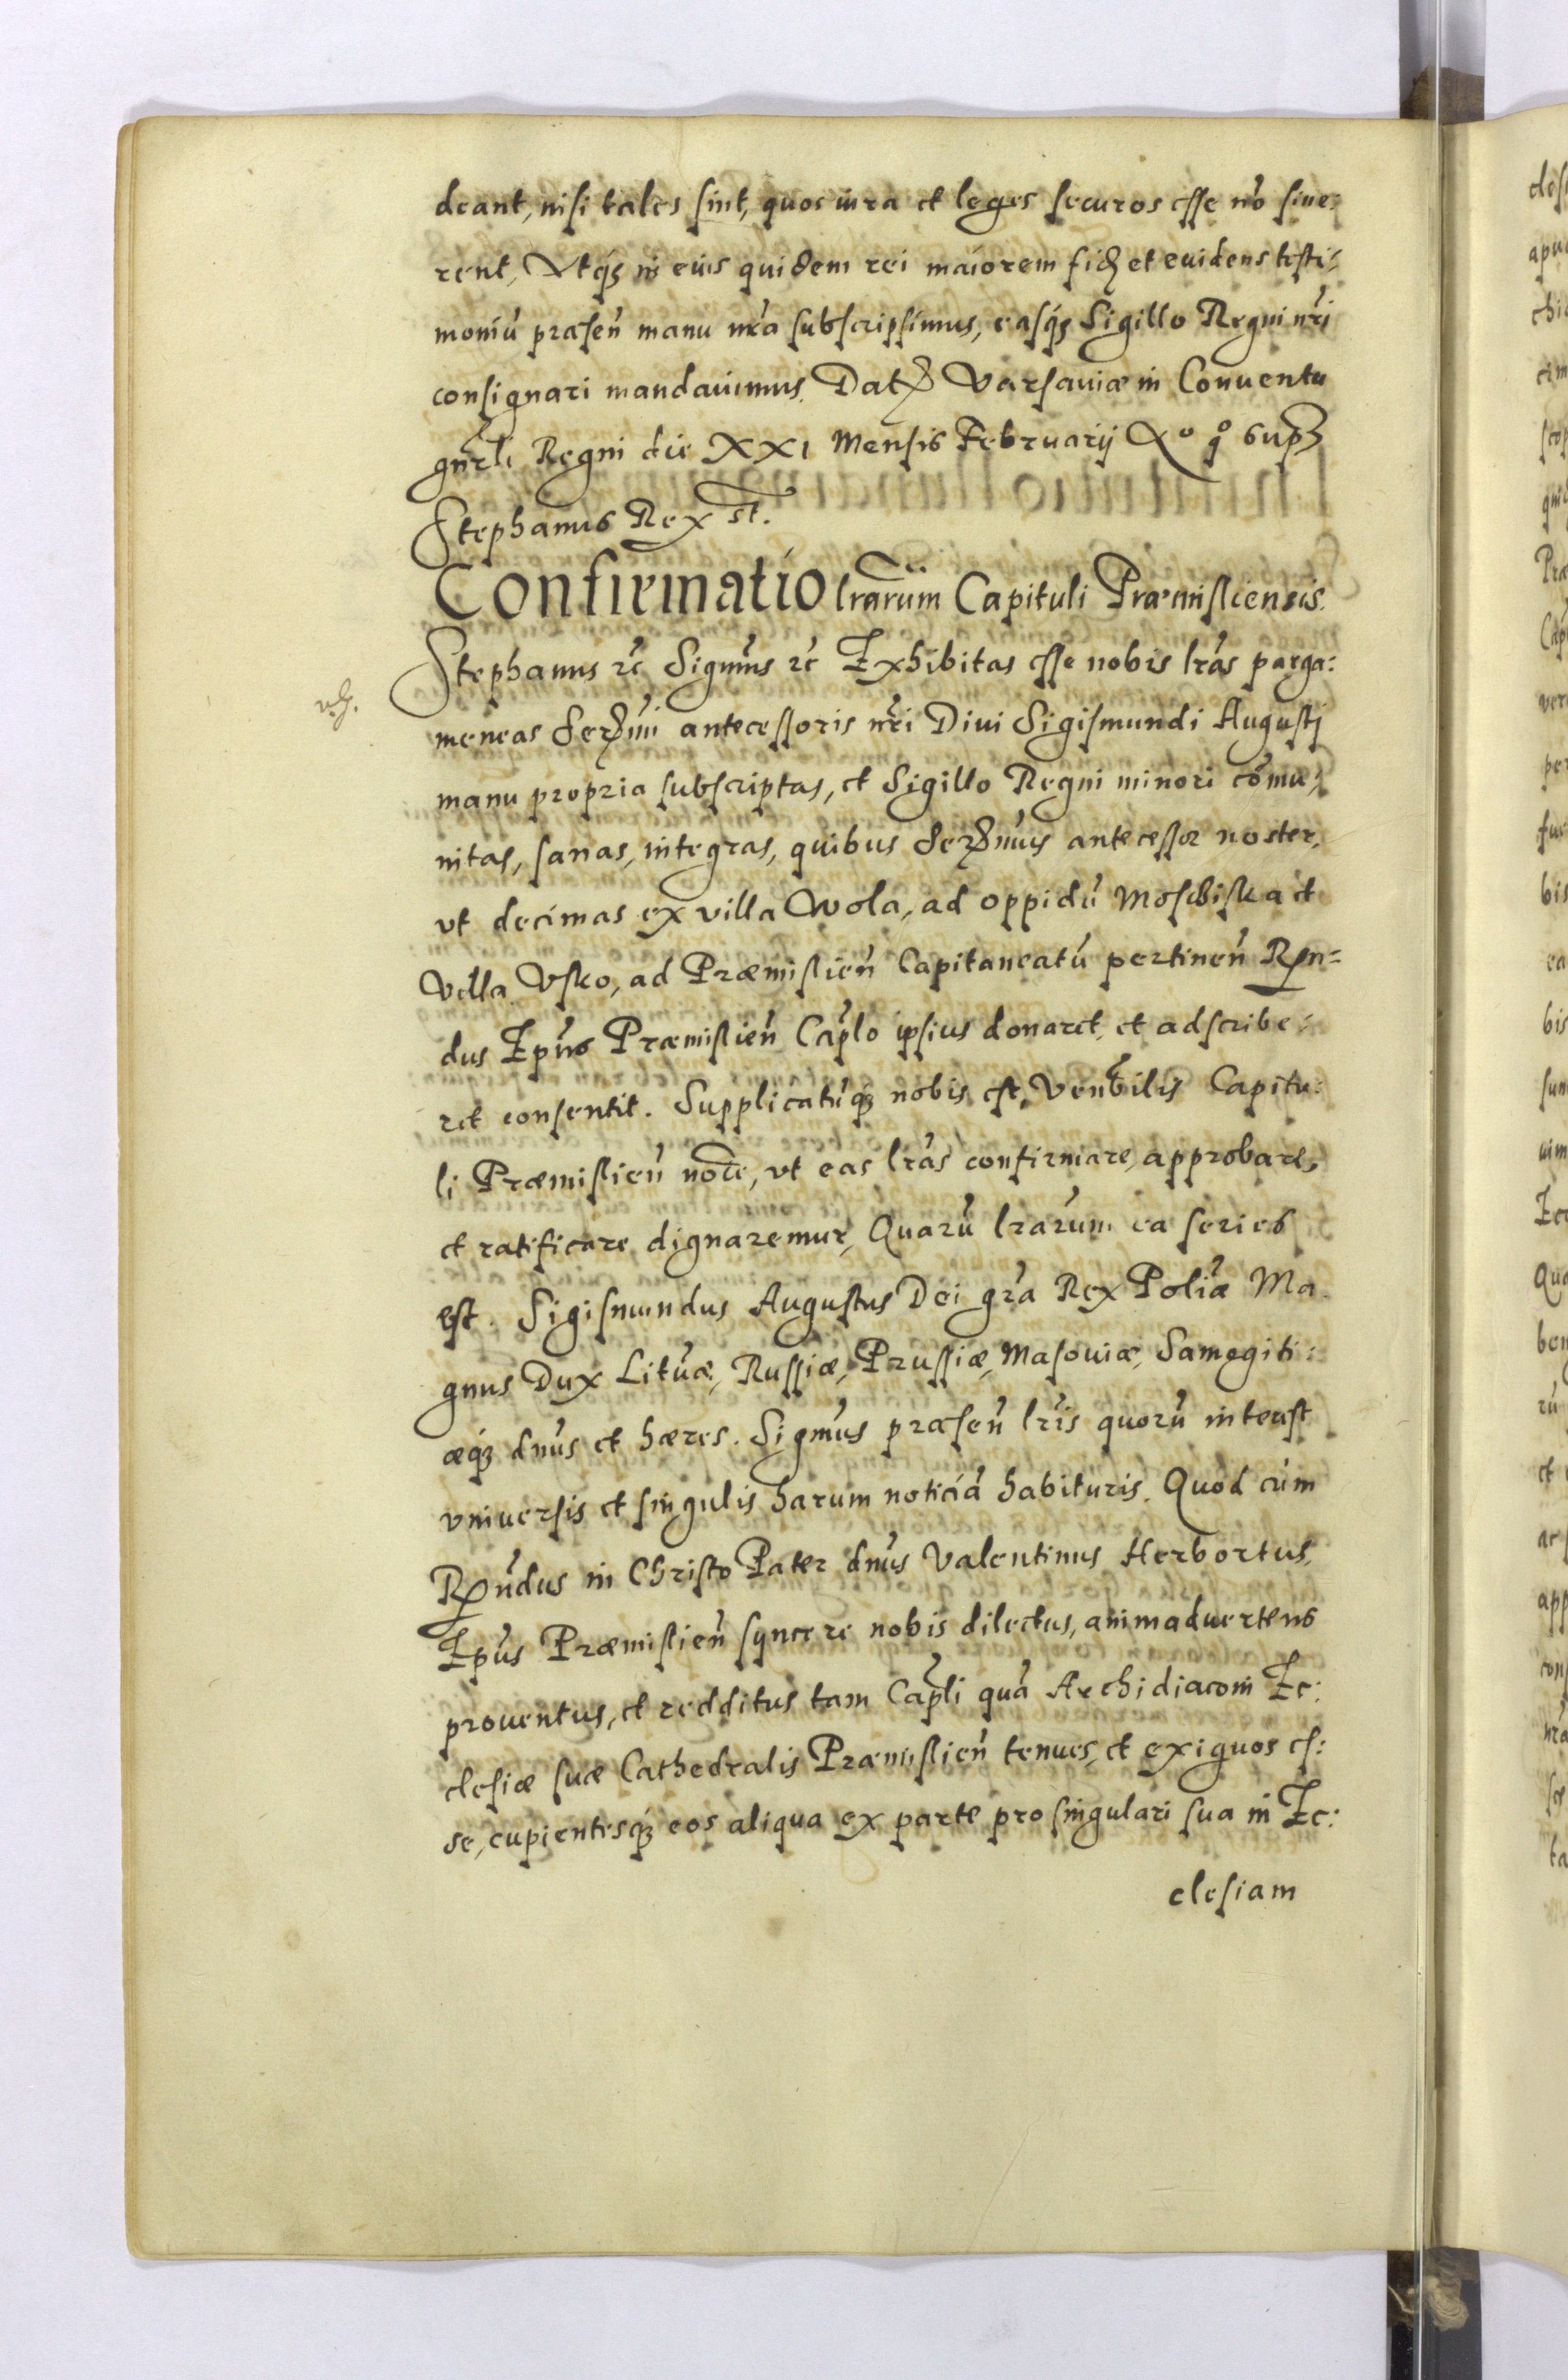 deant, nisi tales sint, quos iura et leges securos esse nõ sine:
rent, Vtq̃ in eius quidem rei maiorem fidẽ et euidens testi:
moniũ præseñ manu nrã subscripsimus, easq̃ Sigillo Regni nrĩ
consignari mandauimus. Dat Varsauiæ in Conuentu
gnrli Regni die XXI Mensis Februarij Ao qo sup
Stephanus Rex st.
Confirmatio lrarum Capituli Præmisliensis.
Stephanus rc̃ Signus rc̃ Exhibitas esse nobis lrãs parga:
meneas Sermi antecessoris nrĩ Diui Sigismundi Augustj
manu propria subscriptas, et Sigillo Regni minori cõmu:
nitas, sanas, integras, quibus Sermus antecessor noster,
vt decimas ex villa Wola, ad oppidũ Moschiska et
Villa Vsko, ad Præmislieñ Capitaneatũ pertineñ Rn=
dus Epũs Præmislieñ Caplo ipsius donaret, et adscribe:
ret consentit. Supplicatũq̃ nobis est, Venbilis Capitu:
li Præmislieñ noie, vt eas lrãs confirmare, approbare,
et ratificare dignaremur, Quarũ lrarum ea series
est. Sigismundus Augustus Dei grã Rex Poliæ Ma
gnus Dux Lituæ, Russiæ, Prussiæ, Masouiæ, Samogiti:
æq̃ dnũs et hæres. Signũs præseñ lrĩs quorũ interest
vniuersis et singulis harum noticiã habituris. Quod cum
Rndus in Christo Pater dnũs Valentinus Herbortus,
Epũs Præmislieñ syncere nobis dilectus, animaduertens
prouentus, et redditus tam Capli quã Archidiaconi Ec:
clesiæ suæ Cathedralis Præmislieñ tenues, et exiguos es:
se, cupientesq̃ eos aliqua ex parte pro singulari sua in Ec:
clesiam